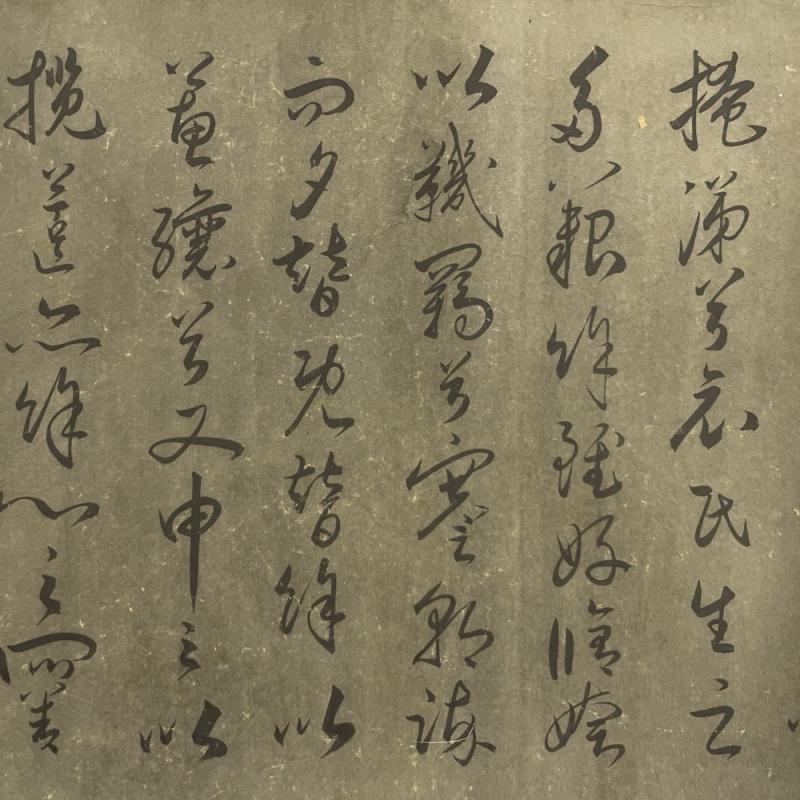 掩涕兮哀民生之
多艱餘雖好脩姱
以鞿羈兮謇朝誶
而夕替既替餘以
蕙纕兮又申之以
攬茝亦餘心之所善